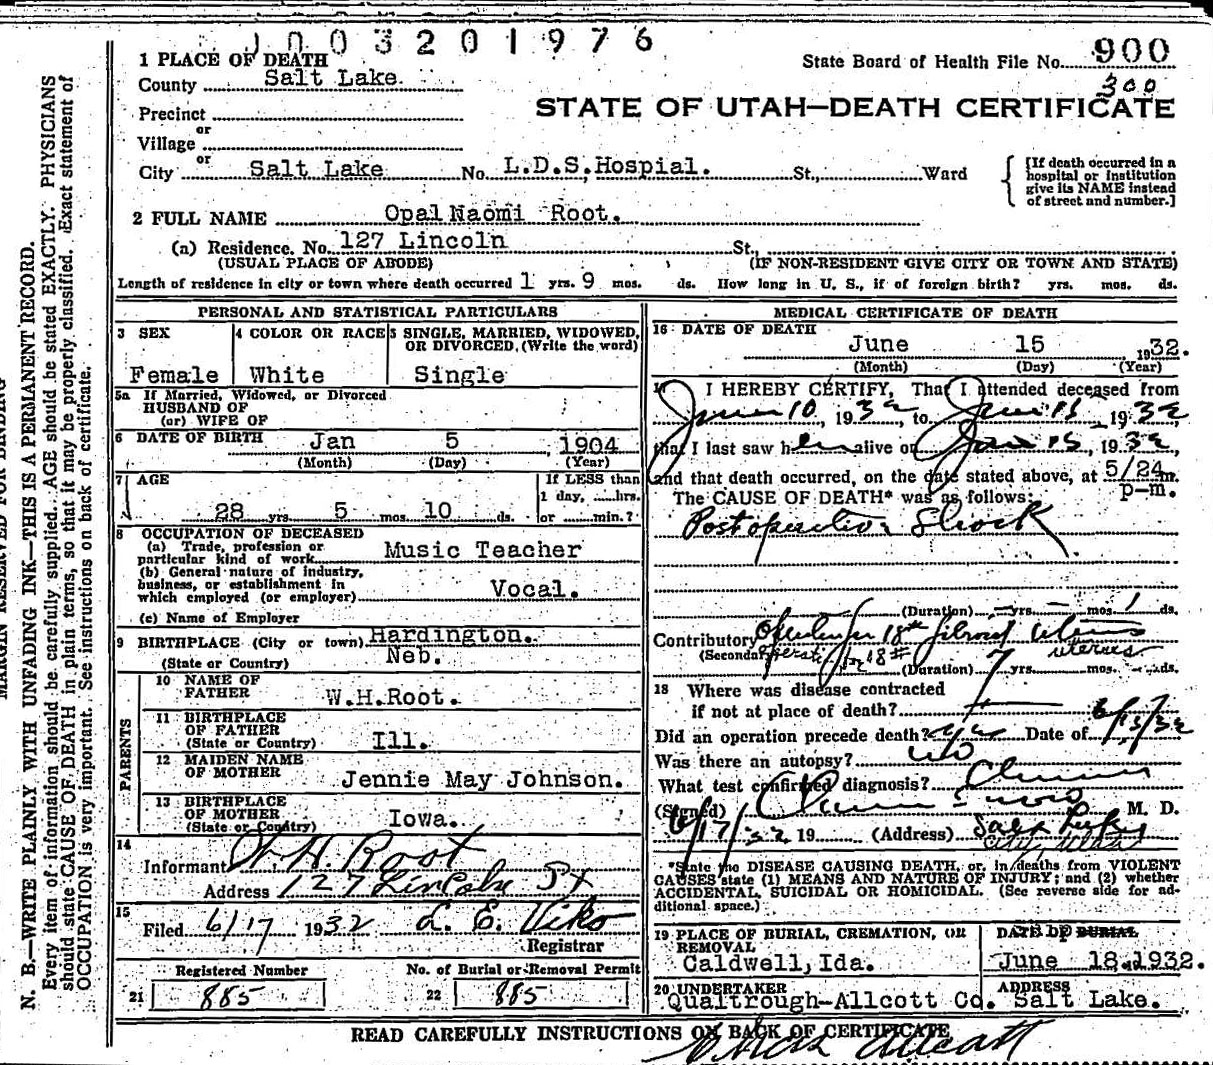 1003201976
1 PLACE OF DEATH
State Board of Health File No. 900
300
County Salt Lake.
STATE OF UTAH—DEATH CERTIFICATE
Precinct
or
Village
or
City Salt Lake No. L.D.S.Hospial. St., Ward
[If death occurred in a hospital or institution give its NAME instead of street and number.]
2 FULL NAME Opal Naomi Root.
(a) Residence. No. 127 Lincoln St.,
(USUAL PLACE OF ABODE) (IF NON-RESIDENT GIVE CITY OR TOWN AND STATE)
Length of residence in city or town where death occurred 1 yrs. 9 mos. ds. How long in U. S., if of foreign birth? yrs. mos. ds.
PERSONAL AND STATISTICAL PARTICULARS
3 SEX
Female
4 COLOR OR RACE
White
5 SINGLE, MARRIED, WIDOWED, OR DIVORCED, (Write the word)
Single
5a If Married, Widowed, or Divorced
HUSBAND OF
(or) WIFE OF
6 DATE OF BIRTH Jan 5 1904
(Month) (Day) (Year)
7 AGE
28 yrs. 5 mos. 10 ds.
If LESS than
1 day, ......hrs.
or .......min.?
8 OCCUPATION OF DECEASED
(a) Trade, profession or
particular kind of work Music Teacher
(b) General nature of industry,
business, or establishment in
which employed (or employer) Vocal.
(c) Name of Employer
9 BIRTHPLACE (City or town) Hardington.
(State or Country) Neb.
PARENTS
10 NAME OF
FATHER W.H.Root.
11 BIRTHPLACE
OF FATHER
(State or Country) Ill.
12 MAIDEN NAME
OF MOTHER Jennie May Johnson.
13 BIRTHPLACE
OF MOTHER
(State or Country) Iowa.
14
Informant W. H. Root
Address 127 Lincoln St
15
Filed 6/17 1932 L. E. Viko
Registrar
Registered Number
21 885
No. of Burial or Removal Permit
22 885
MEDICAL CERTIFICATE OF DEATH
16 DATE OF DEATH
June 15 1932.
(Month) (Day) (Year)
17 I HEREBY CERTIFY, That I attended deceased from
June 10, 1932, to June 15, 1932
that I last saw her alive on June 15, 1932,
and that death occurred, on the date stated above, at 5/24 m.
p-m.
The CAUSE OF DEATH* was as follows:
Postoperative Shock
(Duration) — yrs. — mos. 1 ds.
Contributory for fibroid uterus
(Secondary) uterus
(Duration) 7 yrs. mos. ds.
18 Where was disease contracted
if not at place of death?
Did an operation precede death? yes Date of 6/15/32
Was there an autopsy? no
What test confirmed diagnosis?
(Signed) M. D.
6/17/32 19 (Address) Salt Lake
City, Utah
*State the DISEASE CAUSING DEATH, or, in deaths from VIOLENT
CAUSES state (1) MEANS AND NATURE OF INJURY; and (2) whether
ACCIDENTAL, SUICIDAL OR HOMICIDAL. (See reverse side for ad-
ditional space.)
19 PLACE OF BURIAL, CREMATION, OR
REMOVAL
Caldwell, Ida.
DATE OF BURIAL
June 18.1932.
20 UNDERTAKER
Qualtrough-Allcott Co.
ADDRESS
Salt Lake.
READ CAREFULLY INSTRUCTIONS ON BACK OF CERTIFICATE
MARGIN RESERVED FOR BINDING
N. B.—WRITE PLAINLY WITH UNFADING INK—THIS IS A PERMANENT RECORD.
Every item of information should be carefully supplied. AGE should be stated EXACTLY. PHYSICIANS
should state CAUSE OF DEATH in plain terms, so that it may be properly classified. Exact statement of
OCCUPATION is very important. See instructions on back of certificate.